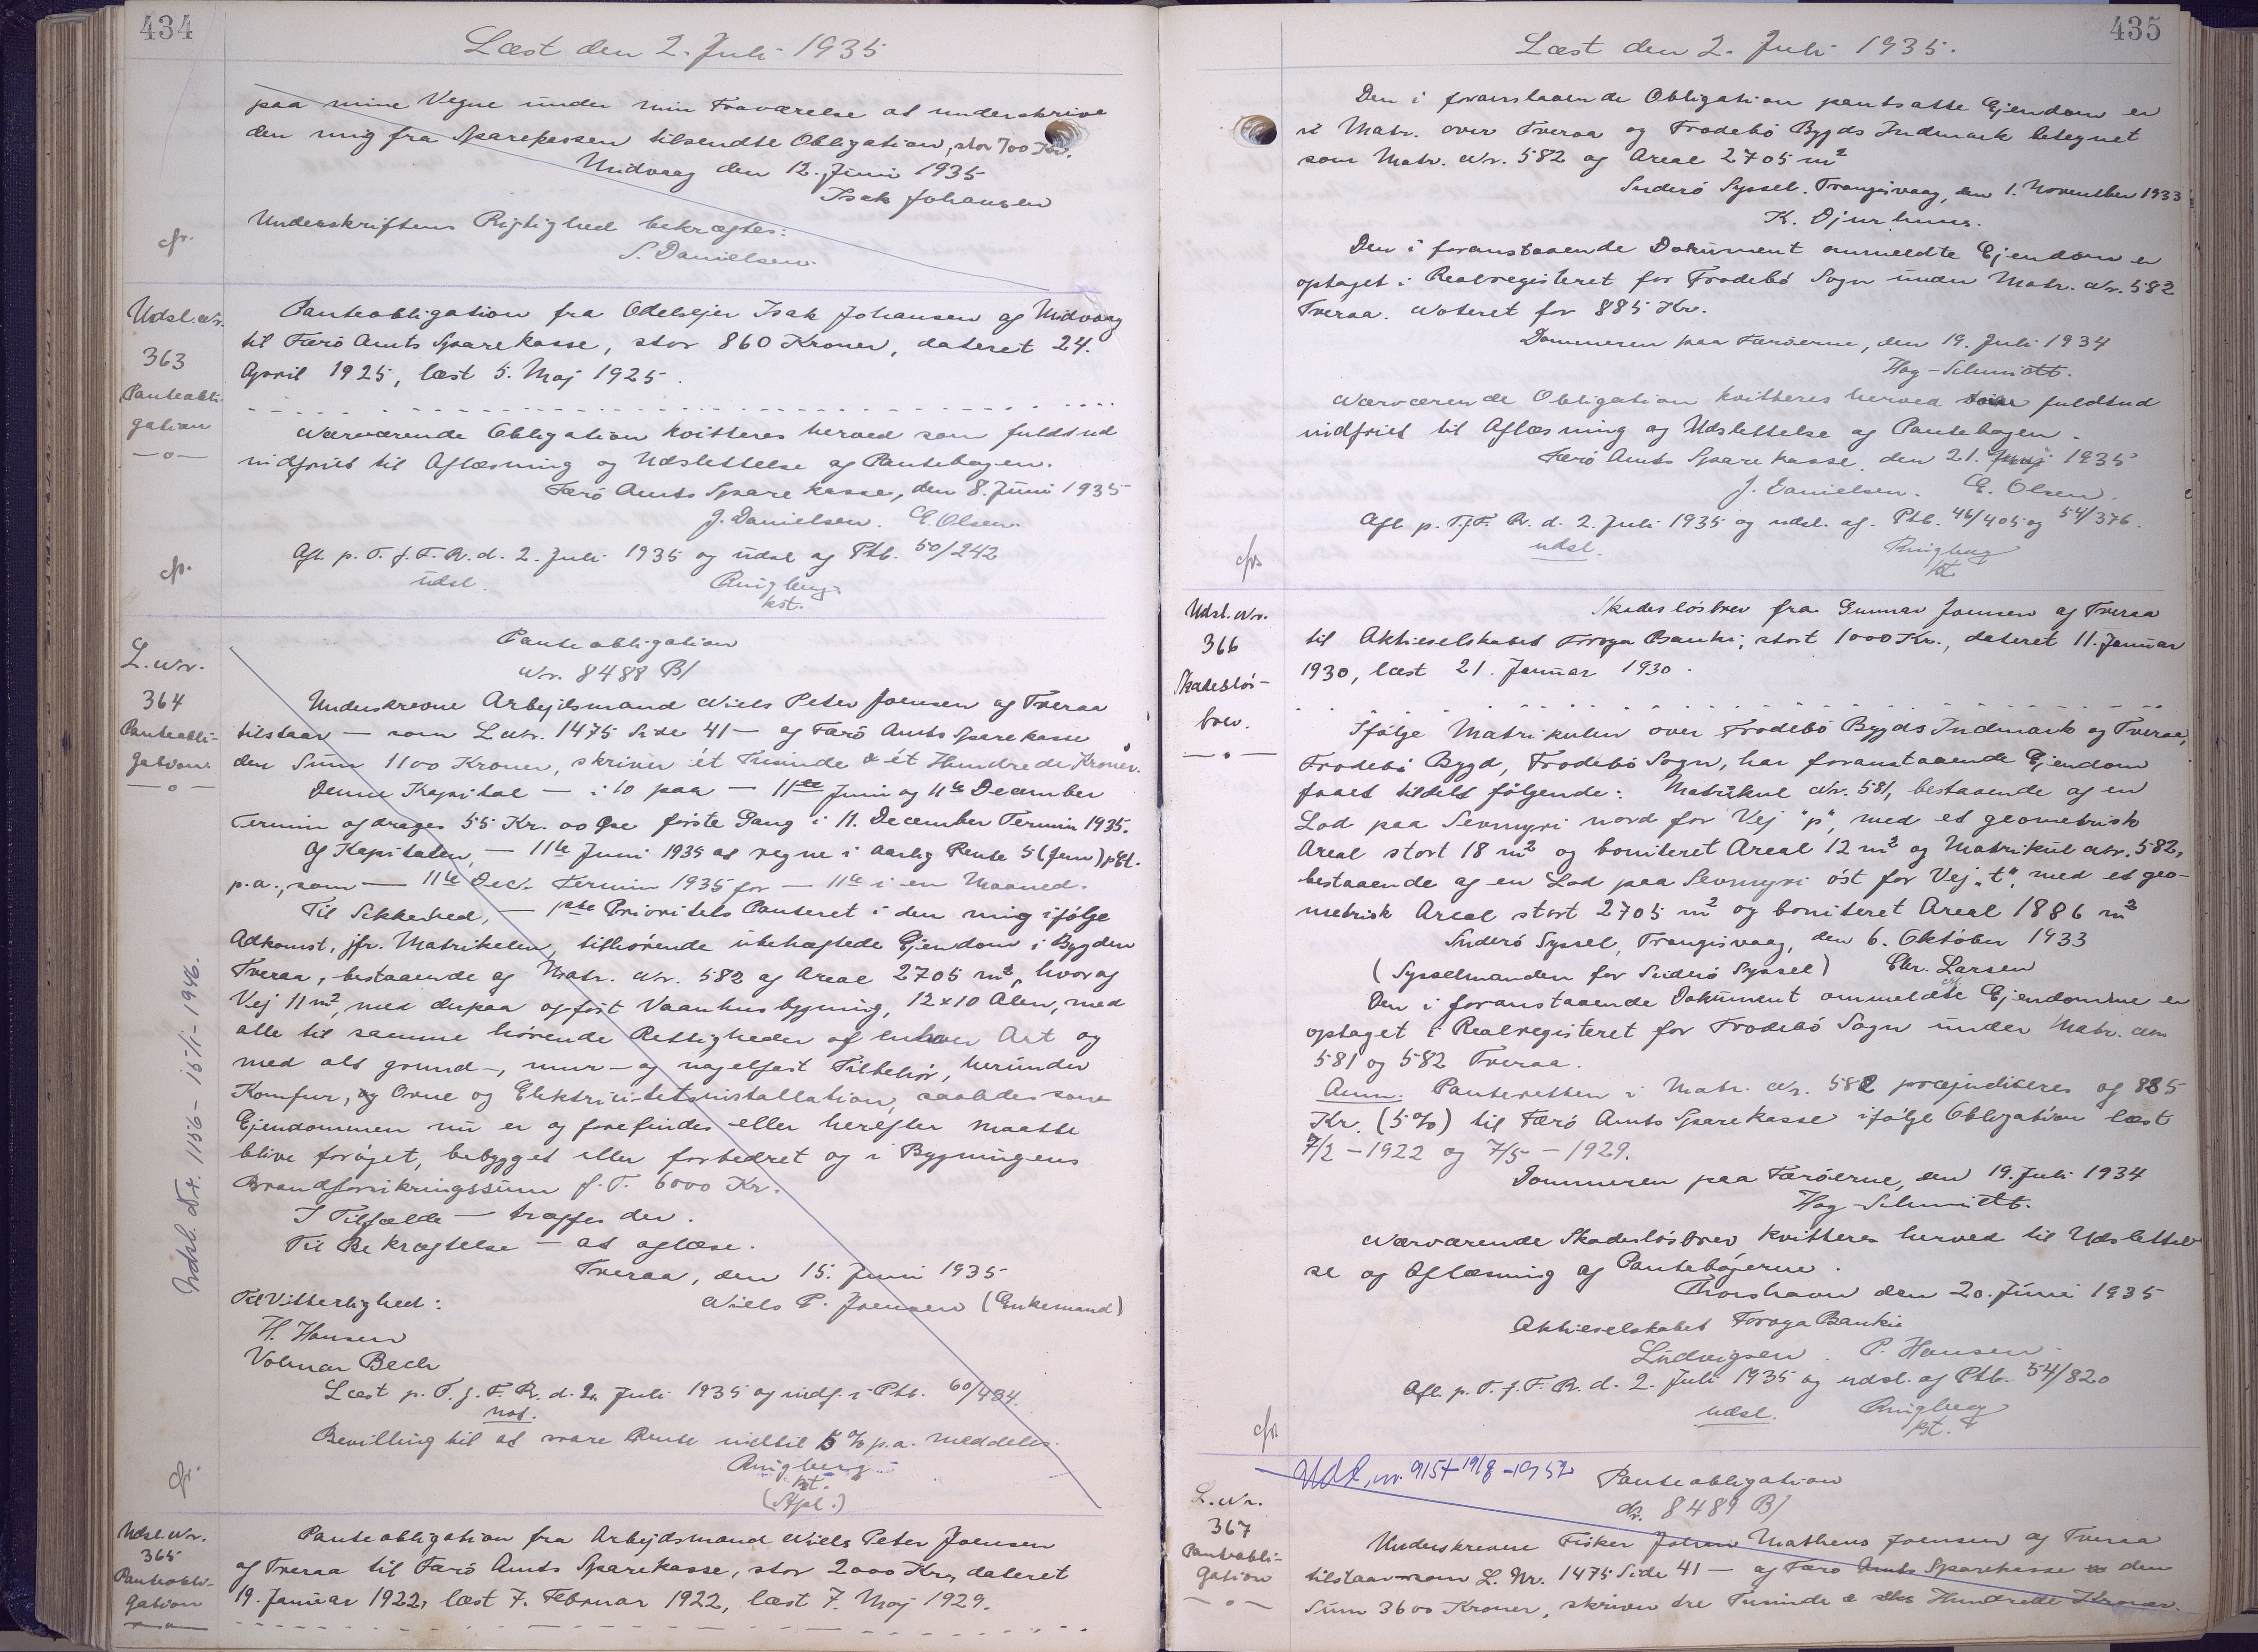 434
Læst den 2. Juli 1935
paa mine Vegne under min Fraværelse at underskrive
den mig fra Sparekassen tilsendte Obligation, stor 700 Kr.
Midvaag den 12. Juni 1935
Isak Johansen
Underskriftens Rigtighed bekræftes:
S. Danielsen.
cfr.
Udsl. Nr.
363
Panteobli-
gation
—o—
Panteobligation fra Odelsejer Isak Johansen af Midvaag
til Færö Amts Sparekasse, stor 860 Kroner, dateret 24.
April 1925, læst 5. Maj 1925.
Nærværende Obligation kvitteres herved som fuldt ud
indfriet til Aflæsning og Udslettelse af Pantebogen.
Færö Amts Sparekasse, den 8. Juni 1935
J. Danielsen. E. Olsen.
Afl. p. T. f. F. R. d. 2. Juli 1935 og udsl af Ptb. 50/242
udsl. Ringberg
kst.
cfr.
L. Nr.
364
Panteobli-
gation
—o—
Udsl. Nr. 1156 - 15/1 - 1946.
Panteobligation
Nr. 8488 B/
Underskrevne Arbejdsmand Niels Peter Joensen af Tveraa
tilstaar — som L Nr. 1475 Side 41 — af Færö Amts Sparekasse
den Sum 1100 Kroner, skriver ét Tusinde & ét Hundrede Kroner.
Denne Kapital — i 10 paa — 11te Juni og 11te December
Termin afdrages 55 Kr. 00 Øre förste Gang i 11. December Termin 1935.
Af Kapitalen, — 11te Juni 1935 at regne i aarlig Rente 5 (fem) pCt.
p.a., som — 11te Dec. Termin 1935 for — 11te i en Maaned.
Til Sikkerhed, — 1ste Prioritets Panteret i den mig ifölge
Adkomst, jfr. Matrikelen, tilhörende ubehæftede Ejendom i Bygden
Tveraa, bestaaende af Matr. Nr. 582 af Areal 2705 m², hvoraf
Vej 11 m², med derpaa opfört Vaaenhusbygning, 12 x 10 Alen, med
alle til samme hörende Rettigheder af enhver Art og
med alt grund-, mur- og nagelfast Tilbehör, herunder
Komfur, og Ovne og Elektricitetsinstallation, saaledes som
Ejendommen nu er og forefindes eller herefter maatte
blive foröget, bebygget eller forbedret og i Bygningens
Brandforsikringssum f. T. 6000 Kr.
I Tilfælde — træffes der.
Til Bekræftelse — at aflæse.
Tveraa, den 15. Juni 1935
Til Vitterlighed: Niels P. Joensen (Enkemand)
H. Hansen
Volmar Bech
Læst p. T. f. F. R. d. 2. Juli 1935 og indf. i Ptb. 60/434.
not.
Bevilling til at svare Rente indtil 5 % p.a. meddeles.
Ringberg
kst.
(Stpl.)
cfr.
Udsl. Nr.
365
Panteobli-
gation
—"—
Panteobligation fra Arbejdsmand Niels Peter Joensen
af Tveraa til Færö Amts Sparekasse, stor 2000 Kr., dateret
19. Januar 1922, læst 7. Februar 1922, læst 7. Maj 1929.
435
Læst den 2. Juli 1935.
Den i foranstaaende Obligation pantsatte Ejendom er
i Matr. over Tveraa og Frodebö Bygds Indmark betegnet
som Matr. Nr. 582 af Areal 2705 m²
Suderö Syssel. Trangisvaag, den 1. November 1933
K. Djurhuus.
Den i foranstaaende Dokument ommeldte Ejendom er
optaget i Realregisteret for Frodebö Sogn under Matr. Nr. 582
Tveraa. Noteret for 885 Kr.
Dommeren paa Færöerne, den 19. Juli 1934
Hag-Schmidt.
Nærværende Obligation kvitteres herved som fuldtud
indfriet til Aflæsning og Udslettelse af Pantebogen.
Færö Amts Sparekasse, den 21. Juni 1935
J. Danielsen. E. Olsen.
Afl. p. T. f. F. R. d. 2. Juli 1935 og udsl. af. Ptb. 46/405 og 54/376.
udsl. Ringberg
kst.
cfr
Udsl. Nr.
366
Skadeslös-
brev.
—o—
Skadeslösbrev fra Gunnar Joensen af Tveraa
til Aktieselskabet Froya Banki, stort 1000 Kr., dateret 11. Januar
1930, læst 21. Januar 1930.
Ifölge Matrikulen over Frodebö Bygds Indmark og Tveraa,
Frodebö Bygd, Frodebö Sogn, har foranstaaende Ejendom
faaet tildelt fölgende: Matrikul Nr. 581, bestaaende af en
Lod paa Sevmyri nord for Vej "p", med et geometrisk
Areal stort 18 m² og boniteret Areal 12 m² og Matrikul Nr. 582,
bestaaende af en Lod paa Sevmyri öst for Vej "t", med et geo-
metrisk Areal stort 2705 m² og boniteret Areal 1886 m²
Suderö Syssel, Trangisvaag, den 6. Oktober 1933
(Sysselmanden for Suderö Syssel) Chr. Larsen
Den i foranstaaende Dokument ommeldte Ejendomme er
optaget i Realregisteret for Frodebö Sogn under Matr. Nr.
581 og 582 Tveraa.
Anm. Panteretten i Matr. Nr. 582 præjudiceres af 885
Kr. (5%) til Færö Amts Sparekasse ifölge Obligation læst
7/2 - 1922 og 7/5 - 1929.
Dommeren paa Færöerne, den 19. Juli 1934
Hag-Schmidt.
Nærværende Skadeslösbrev kvitteres herved til Udslettel-
se og Aflæsning af Pantebögerne.
Thorshavn den 20. Juni 1935
Aktieselskabet Foroya Banki
Ludvigsen. P. Hansen.
Afl. p. T. f. F. R. d. 2. Juli 1935 og udsl. af Ptb. 54/820
udsl. Ringberg
kst.
cfr
Udsl. nr. 915 - 19/8 - 1952
L. Nr.
367
Panteobli-
gation
—o—
Panteobligation
Nr. 8489 B/
Underskrevne Fisker Matheus Joensen af Tveraa
tilstaar som L. Nr. 1475 Side 41 — af Færö Amts Sparekasse den
Sum 3600 Kroner, skriver tre Tusinde & seks Hundrede Kroner.